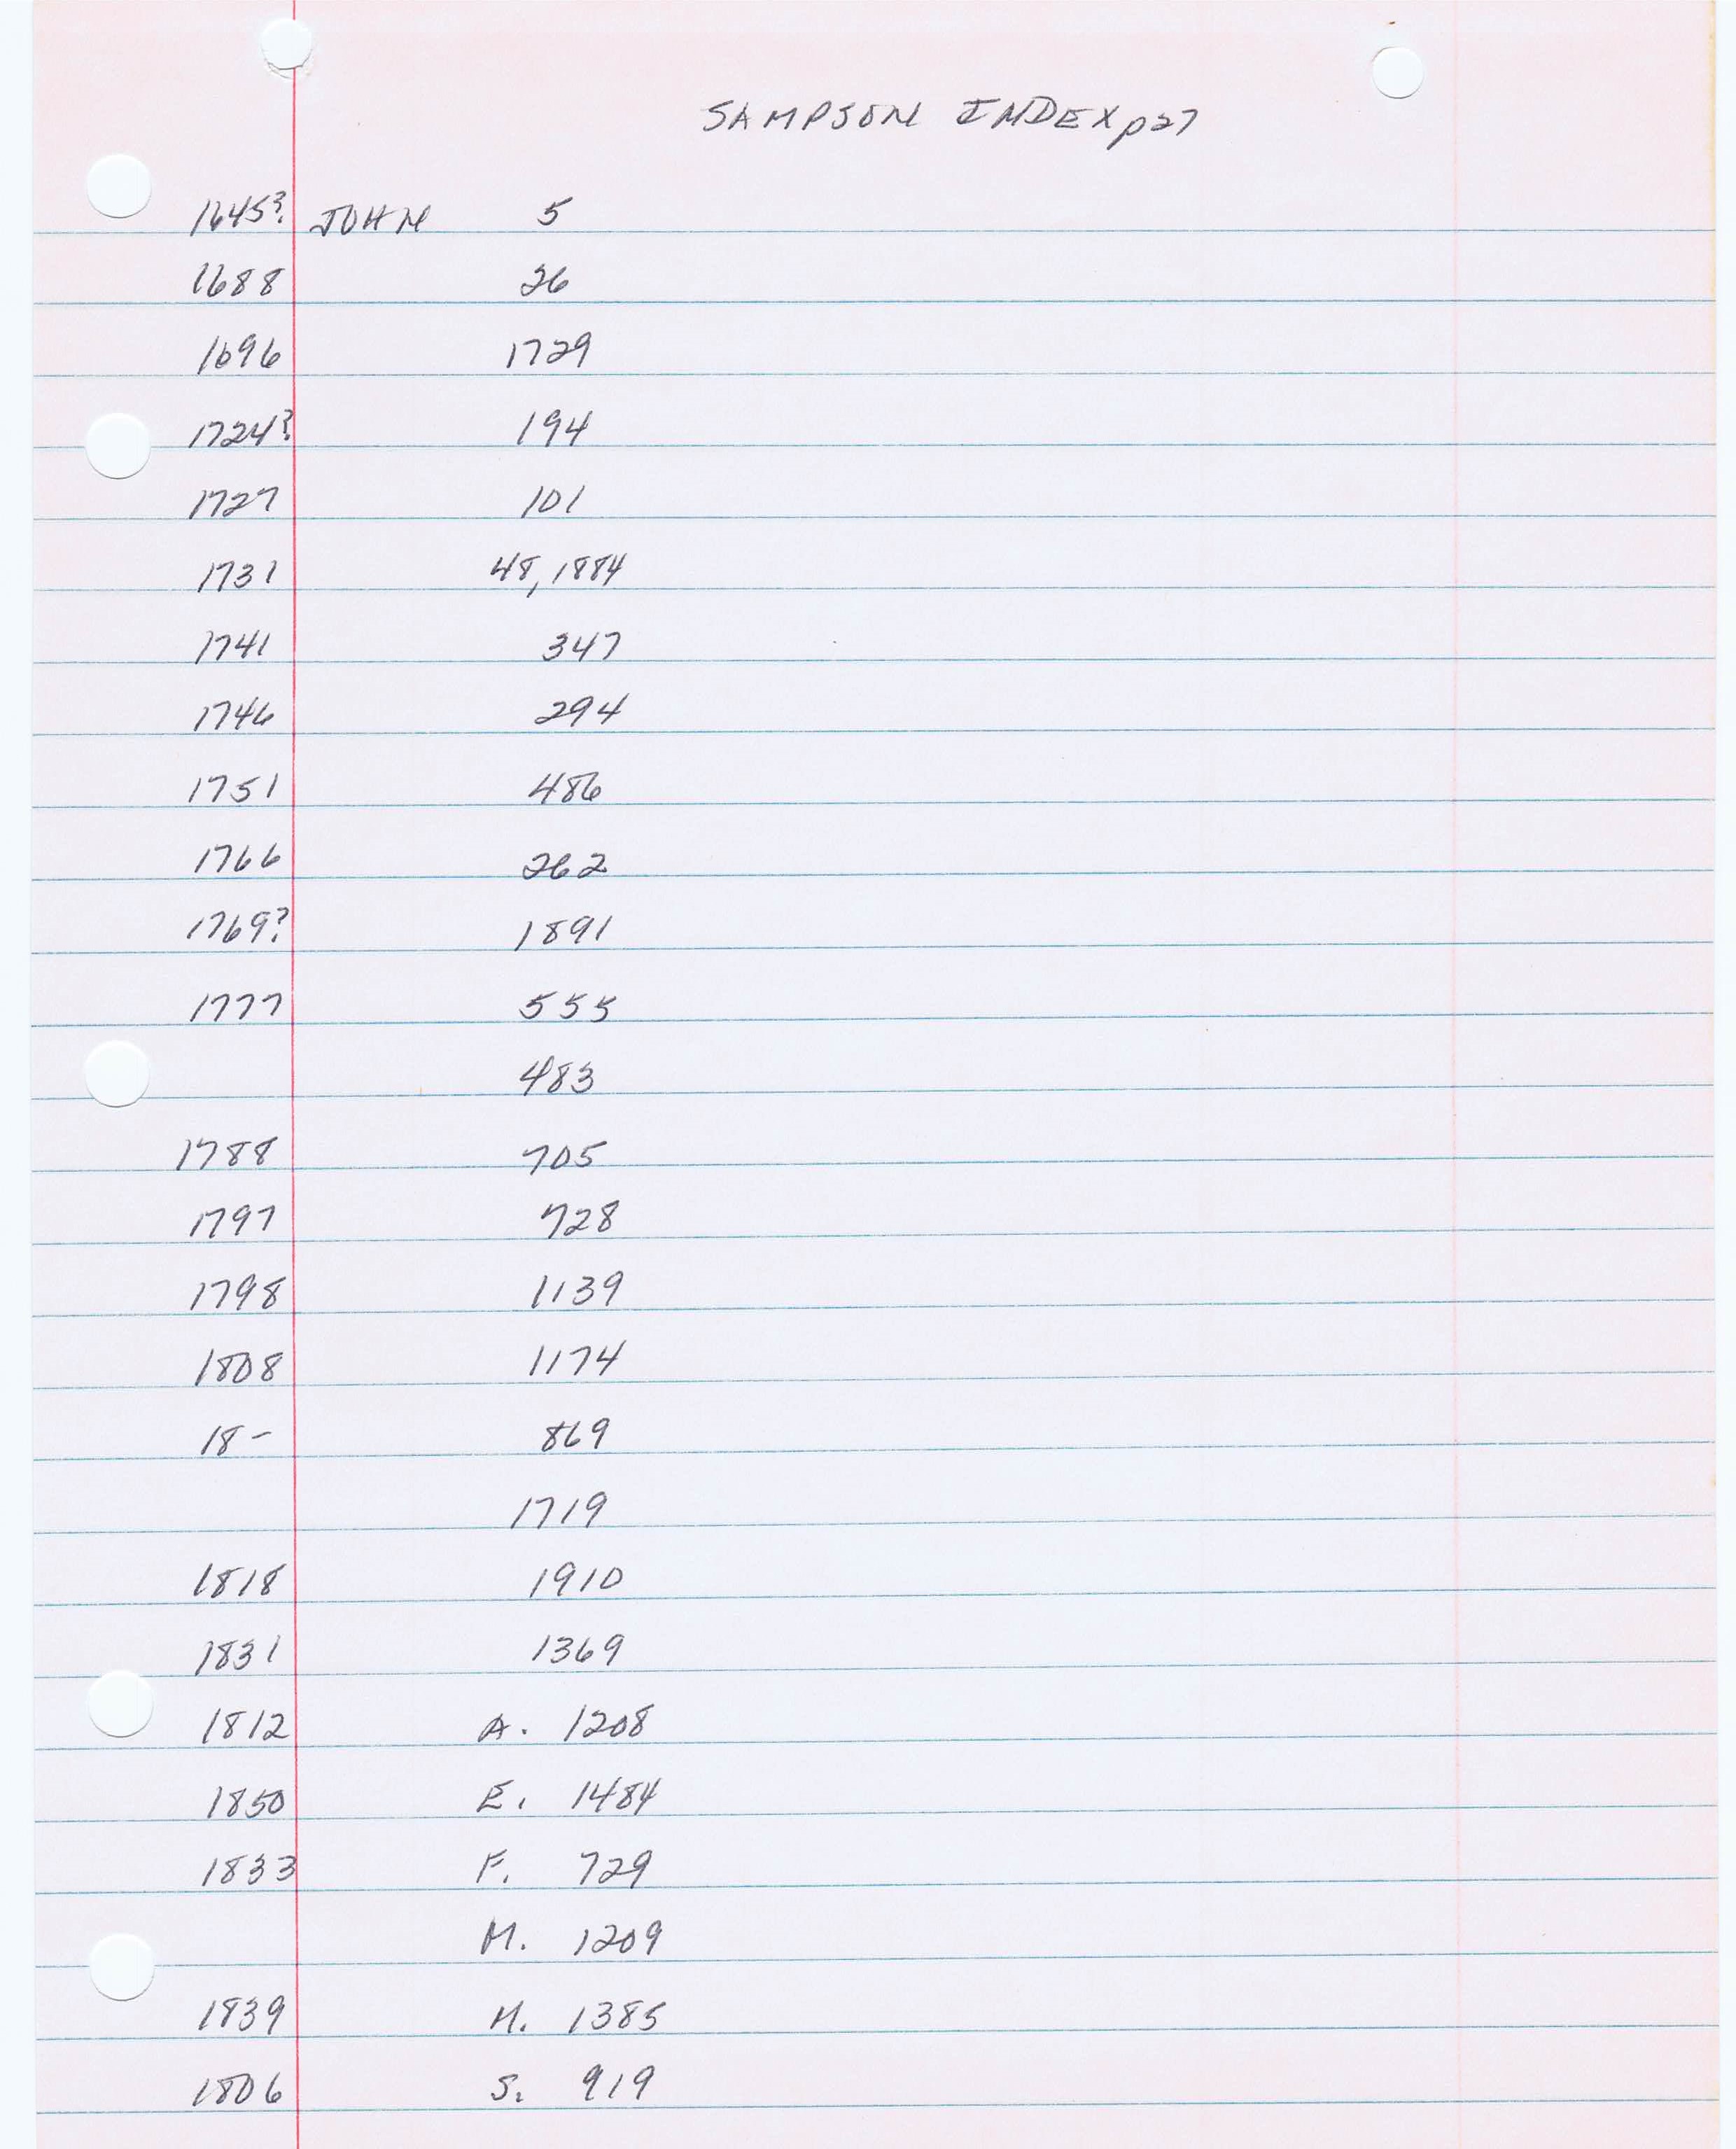 SAMPSON INDEX p27
1645? JOHN 5
1688 26
1696 1729
1724? 194
1727 101
1731 48, 1884
1741 347
1746 294
1751 486
1766 262
1769? 1891
1777 555
483
1788 705
1797 728
1798 1139
1808 1174
18- 869
1719
1818 1910
1831 1369
1812 A. 1208
1850 E. 1484
1833 F. 729
M. 1209
1839 N. 1385
1806 S. 919